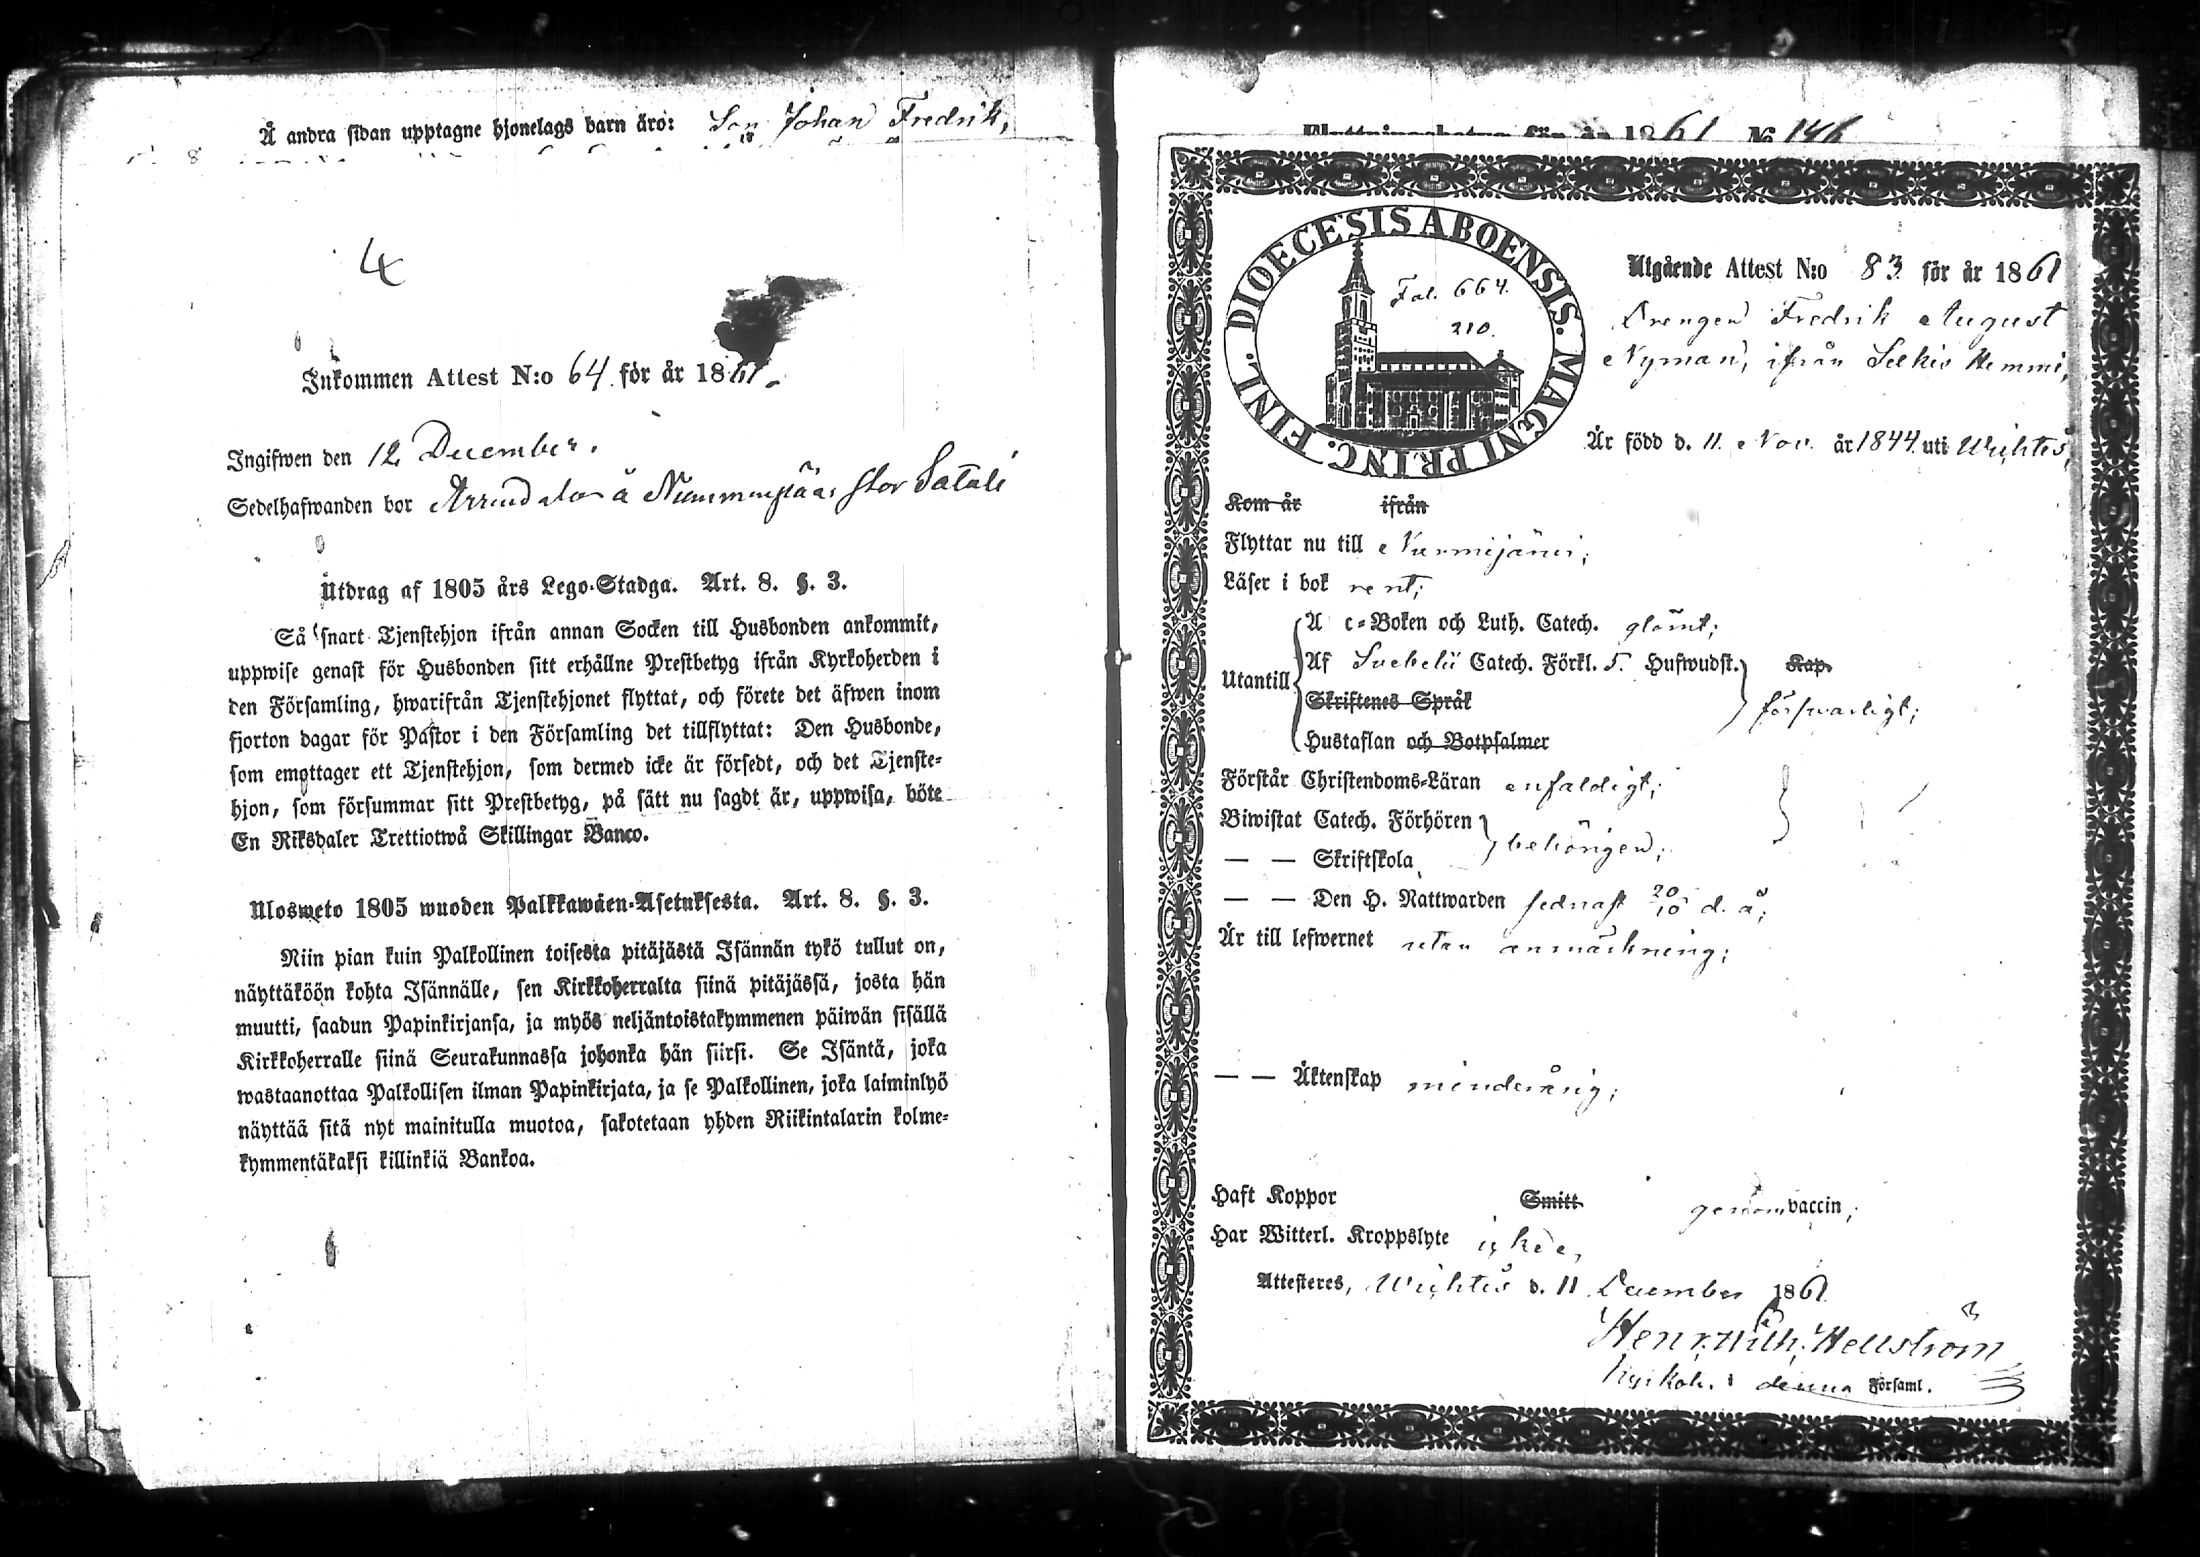 Å andra sidan upptagne hjonelags barn äro: Son Johan Fredrik,
4
Inkommen Attest N:o 64 för år 1861.
Ingifwen den 12 December.
Sedelhafwanden bor å Nummenpää Stor
Utdrag af 1805 års Lego-Stadga. Art. 8. §. 3.
Så snart Tjenstehjon ifrån annan Socken till Husbonden ankommit,
uppwise genast för Husbonden sitt erhållne Prestbetyg ifrån Kyrkoherden i
den Församling, hwarifrån Tjenstehjonet flyttat, och förete det äfwen inom
fjorton dagar för Pastor i den Församling det tillflyttat: Den Husbonde,
som emottager ett Tjenstehjon, som dermed icke är försedt, och det Tjenste-
hjon, som försummar sitt Prestbetyg, på sätt nu sagdt är, uppwisa, böte
En Riksdaler Trettiotwå Skillingar Banco.
Ulosweto 1805 wuoden Palkkawäen-Asetuksesta. Art. 8. §. 3.
Niin pian kuin Palkollinen toisesta pitäjästä Isännän tykö tullut on,
näyttäköön kohta Isännälle, sen Kirkkoherralta siinä pitäjässä, josta hän
muutti, saadun Papinkirjansa, ja myös neljäntoistakymmenen päiwän sisällä
Kirkkoherralle siinä Seurakunnassa johonka hän siirsi. Se Isäntä, joka
wastaanottaa Palkollisen ilman Papinkirjata, ja se Palkollinen, joka laiminlyö
näyttää sitä nyt mainitulla muotoa, sakotetaan yhden Riikintalarin kolme-
kymmentäkaksi killinkiä Bankoa.
Flyttningsbetyg för år 1861 No 146
DIOECESIS ABOENSIS. MAGNI PRINC. FINL.
Fol. 664.
210.
Utgående Attest N:o 83 för år 1861
Drengen Fredrik August
Nyman, ifrån Selkis Hemmi,
Är född d. 11. Nov. år 1844. uti Wichtis,
Kom år ifrån
Flyttar nu till Nurmijärvi;
Läser i bok rent;
Utantill
A b c-Boken och Luth. Catech. glömt;
Af Svebelii Catech. Förkl. 5. Hufwudst. Kap.
Skriftenes Språk
försvarligt;
Hustaflan och Botpsalmer
Förstår Christendoms-Läran enfaldigt;
Biwistat Catech. Förhören
— — Skriftskola
behörigen;
— — Den H. Nattwarden sednast 20/10 d. å;
Är till lefwernet utan anmärkning;
— — Äktenskap minderårig;
Haft Koppor Smitt genom vaccin;
Har Witterl. Kroppslyte icke,
Attesteres, Wichtis d. 11 December 1861.
Henr. Wilh. Hellström
Kyrkoh. i denna Församl.